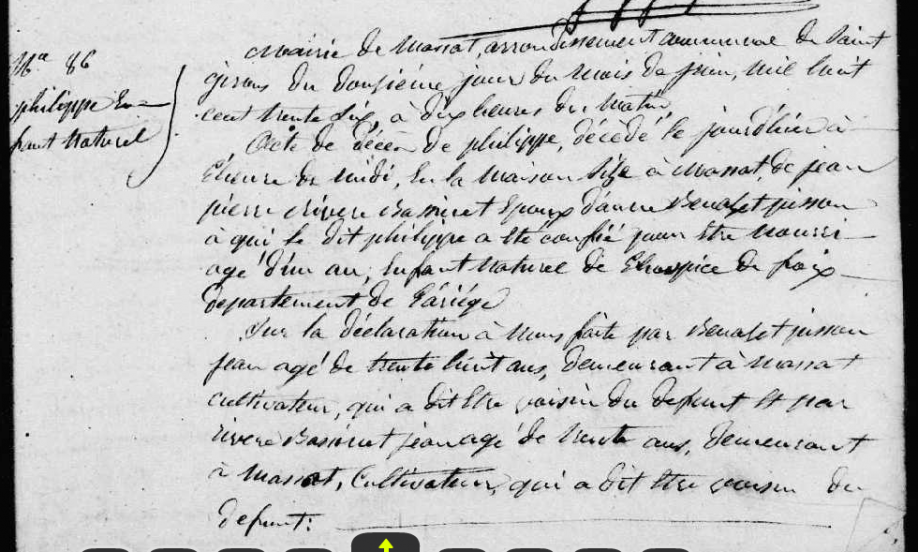 Nº 86
philippe En-
fant Naturel
Mairie de Massat, arrondissement communal de Saint
girons du Douzieme jour du mois de juin, mil huit
cent trente Six, à dix heures du Matin
Acte de décès de philippe, décédé le jourdhier à
heure de midi, En la Maison Size à Massat, de jean
pierre rivere Bassinet Epoux d'anne Benazet pisson
à qui le dit philippe a été confié pour être nourri
agé d'un an, Enfant Naturel de L'hospice de foix
departement de L'ariége
Sur la déclaration à Nous faite par Benazet pisson
jean agé de trente huit ans, Demeurant à Massat
cultivateur, qui a dit Etre voisin du defunt Et par
rivere Bassinet jean agé de trente ans, Demeurant
à Massat, Cultivateur, qui a dit Etre voisin du
defunt: